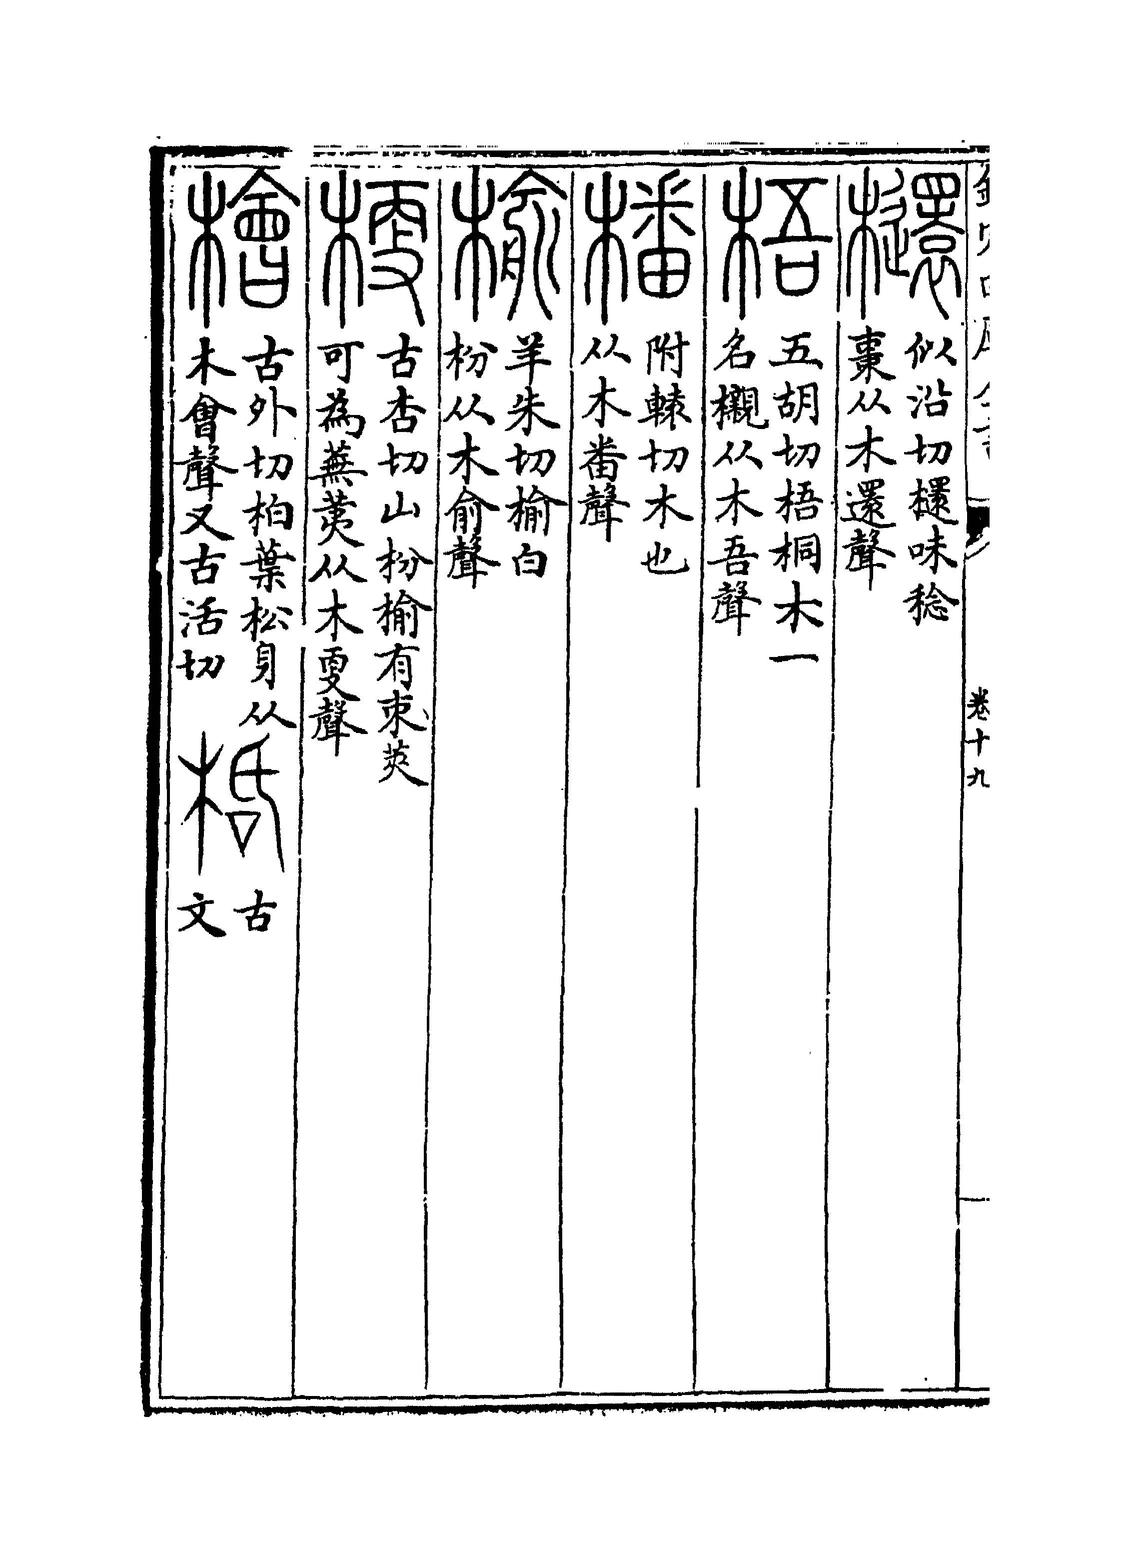 欽定四庫全書
卷十九
檈
似沿切檈味稔
棗从木還聲
梧
五胡切梧桐木一
名櫬从木吾聲
橎
附轅切木也
从木番聲
榆
羊朱切榆白
枌从木俞聲
梗
古杏切山枌榆有朿莢
可為蕪荑从木㪅聲
檜
古外切柏葉松身从
木會聲又古活切
𣐑
古
文